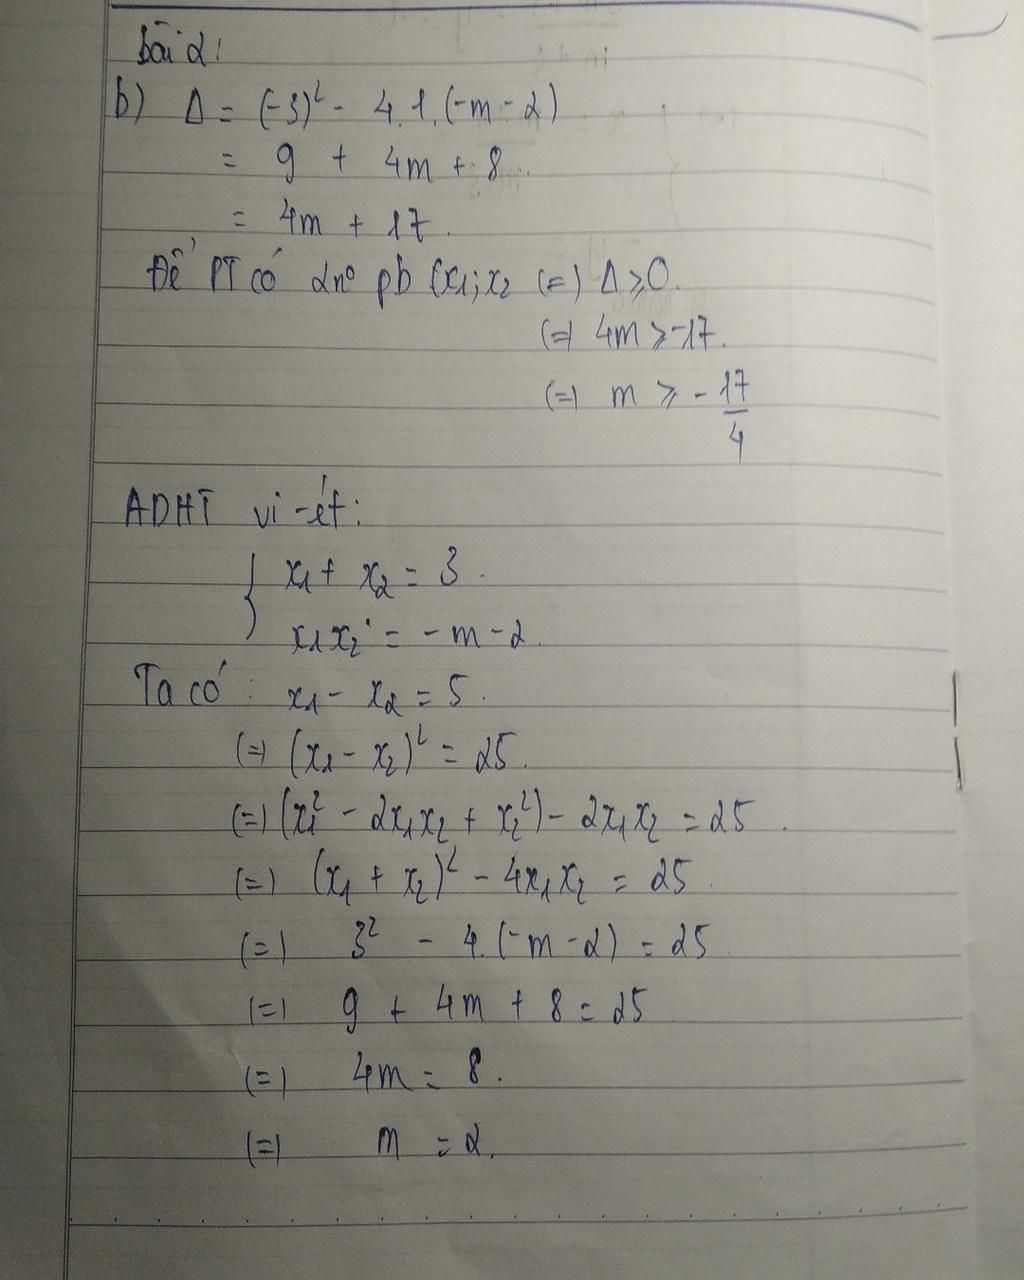 bài 2:
b) Δ = (-3)² - 4.1.(-m - 2)
= 9 + 4m + 8.
= 4m + 17.
Để PT có 2n⁰ pb (x₁; x₂ (=) Δ ⩾ 0.
(=) 4m ⩾ -17.
(=) m ⩾ - 17/4
ADHT vi-ét:
{ x₁ + x₂ = 3.
x₁x₂ = - m - 2.
Ta có: x₁ - x₂ = 5.
(=) (x₁ - x₂)² = 25.
(=) (x₁² - 2x₁x₂ + x₂²) - 2x₁x₂ = 25.
(=) (x₁ + x₂)² - 4x₁x₂ = 25.
(=) 3² - 4.(-m - 2) = 25
(=) 9 + 4m + 8 = 25
(=) 4m = 8.
(=) m = 2.